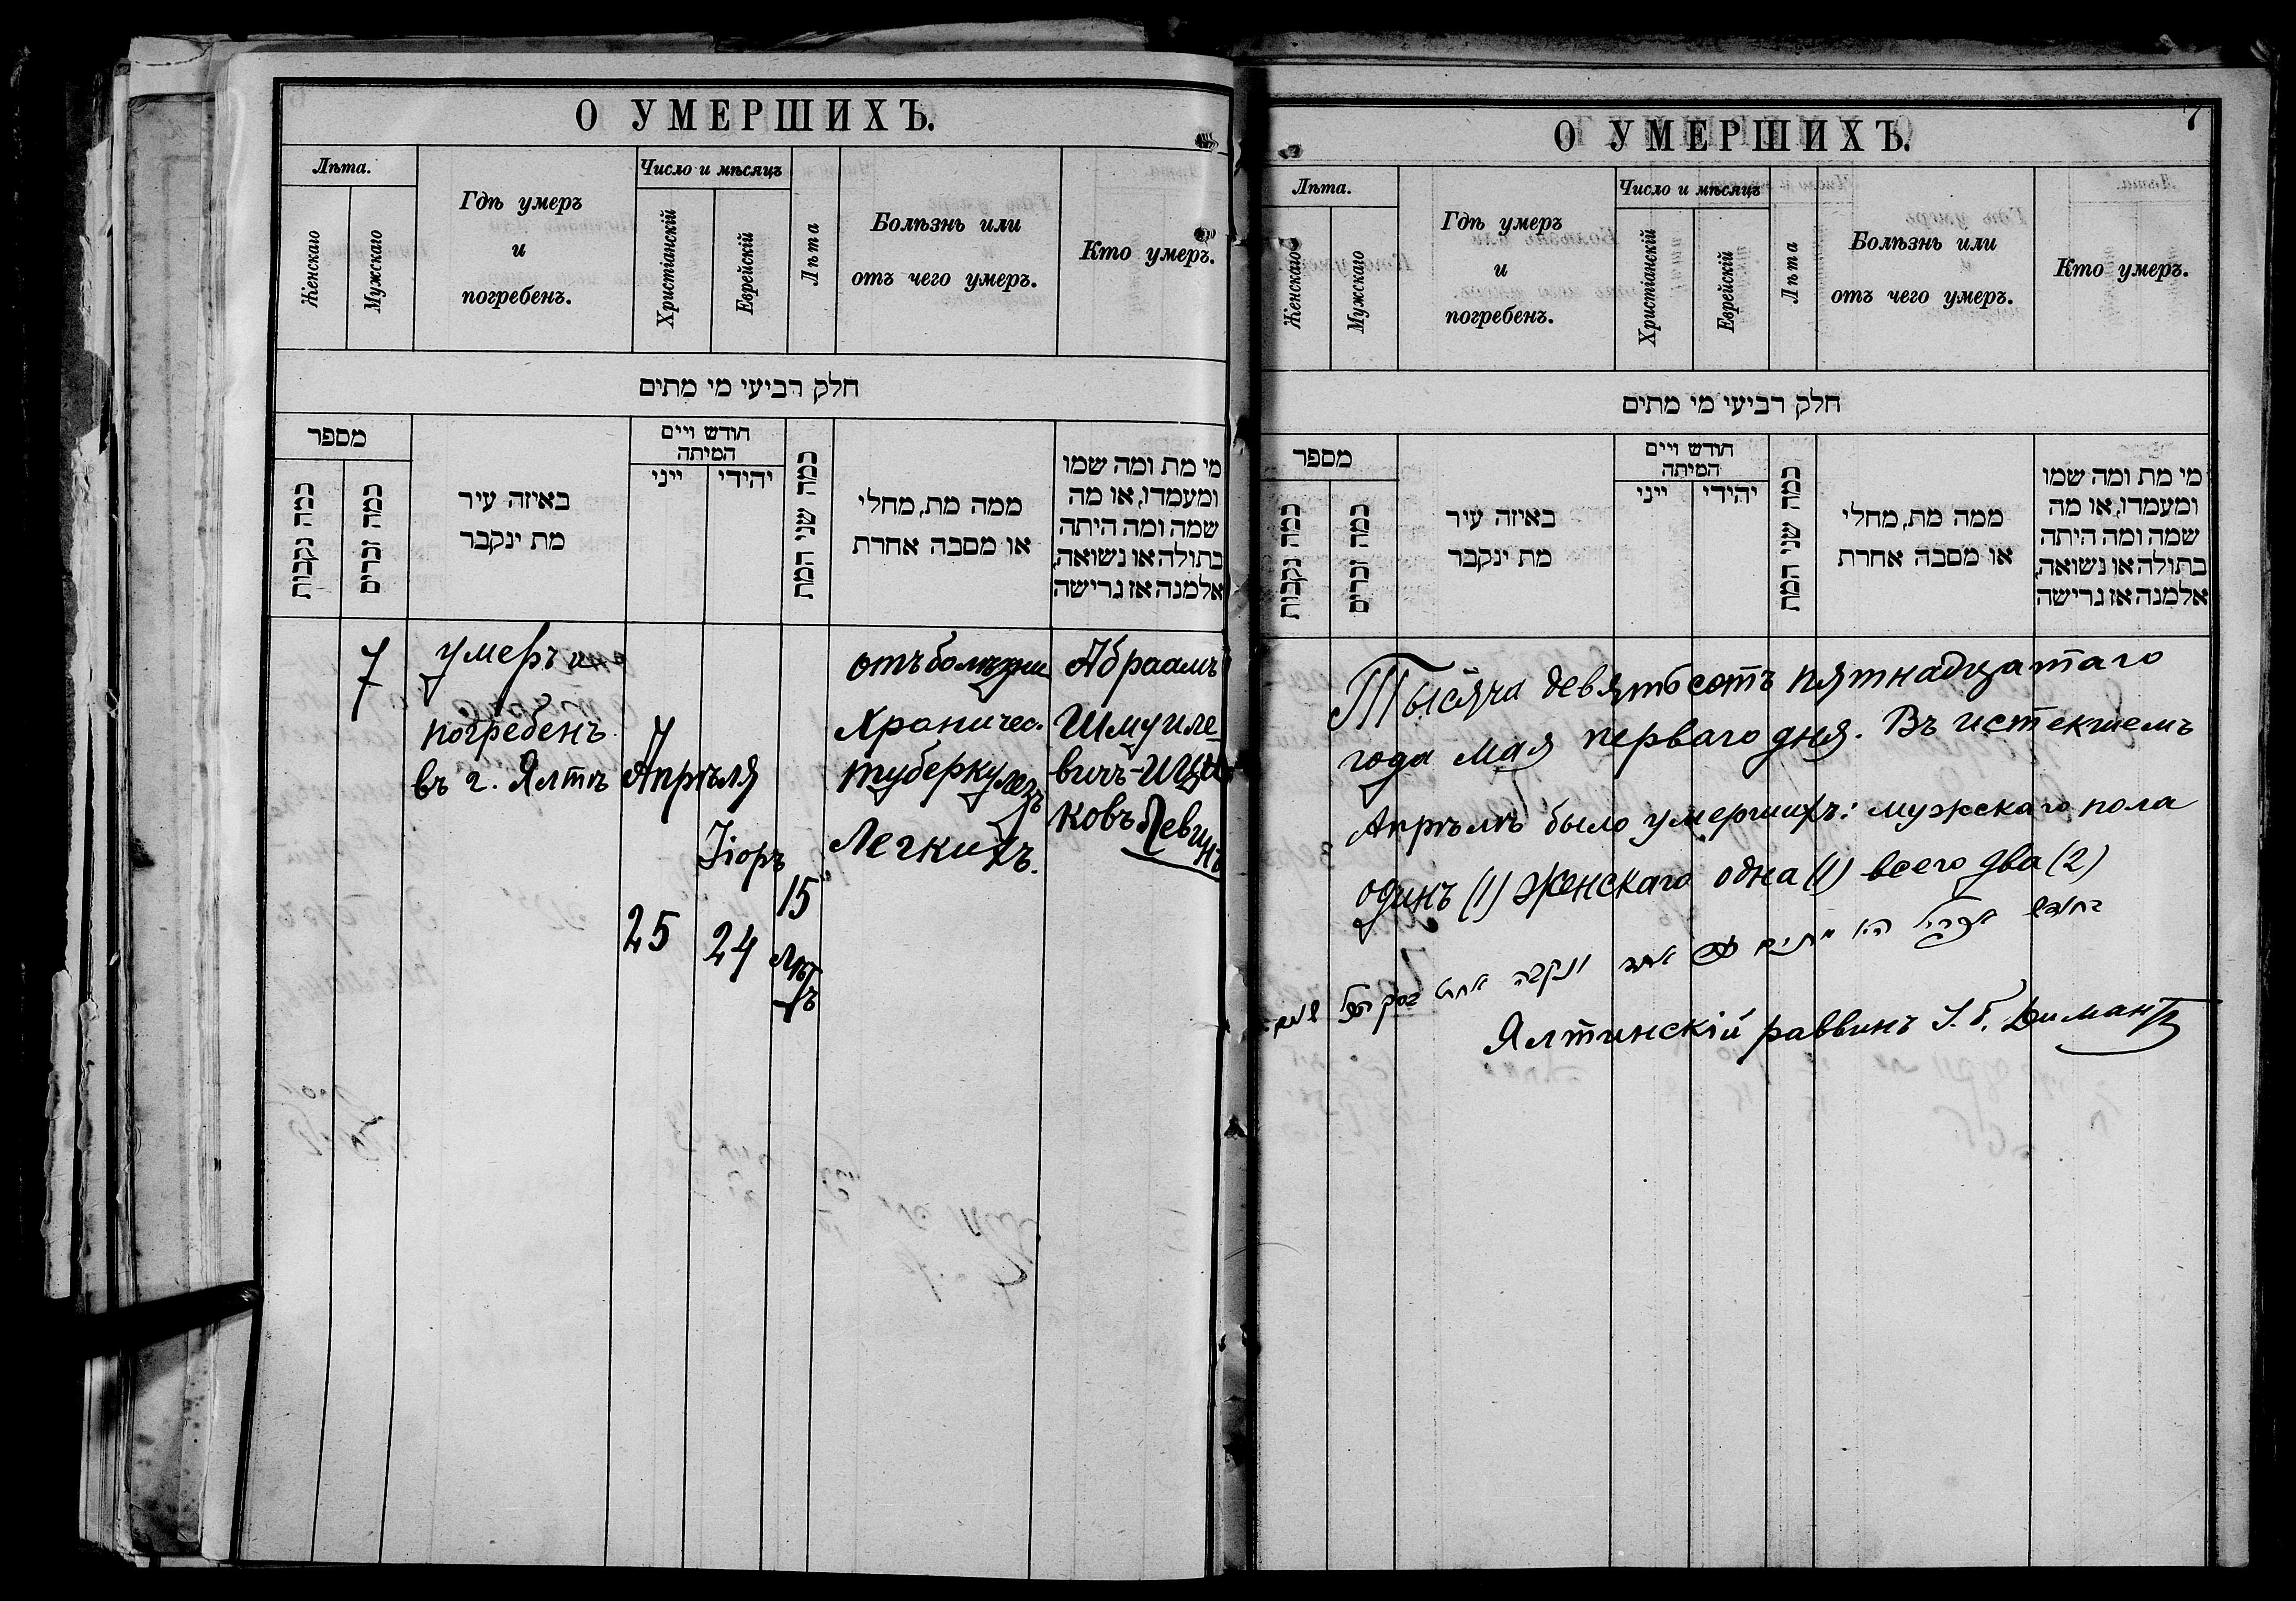 О УМЕРШИХЪ.
Лѣта.
Женскаго
Мужскаго
Гдѣ умеръ
и
погребенъ.
Число и мѣсяцъ
Христіанскій
Еврейскій
Лѣта
Болѣзнь или
отъ чего умеръ.
Кто умеръ.
חלק רביעי מי מתים
מספר
כמה נקבות
כמה זכרים
באיזה עיר
מת ינקבר
חודש ויים
המיתה
ייני
יהידי
כמה שני המת
ממה מת, מחלי
או מסבה אחרת
מי מת ומה שמו
ומעמדו, או מה
שמה ומה היתה
בתולה או נשואה,
אלמנה אז גרישה
7
умеръ и
погребенъ
въ г. Ялтѣ
7
Апрѣля
25
Іюръ
24
15
лѣтъ
отъ болѣзни
Хроничес.
туберкулезъ
Легкихъ.
Абраамъ
Шмуиле
вичъ-Ицко
ковъ Левинъ
7
О УМЕРШИХЪ.
Лѣта.
Женскаго
Мужскаго
Гдѣ умеръ
и
погребенъ.
Число и мѣсяцъ
Христіанскій
Еврейскій
Лѣта
Болѣзнь или
отъ чего умеръ.
Кто умеръ.
חלק רביעי מי מתים
מספר
כמה נקבות
כמה זכרים
באיזה עיר
מת ינקבר
חודש ויים
המיתה
ייני
יהידי
כמה שני המת
ממה מת, מחלי
או מסבה אחרת
מי מת ומה שמו
ומעמדו, או מה
שמה ומה היתה
בתולה או נשואה,
אלמנה אז גרישה
Тысяча девятьсотъ пятнадцатаго
года мая перваго дня. Въ истекшемъ
Апрѣлѣ было умершихъ: мужскаго пола
одинъ (1) женскаго одна (1) всего два (2)
בחודש אפריל היו מתים זכר אחד ונקבה אחת בסך הכל שנים
Ялтинскій раввинъ